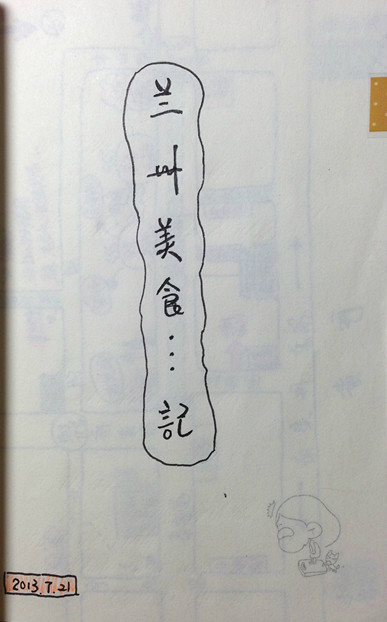 兰州美食...記
2013.7.21